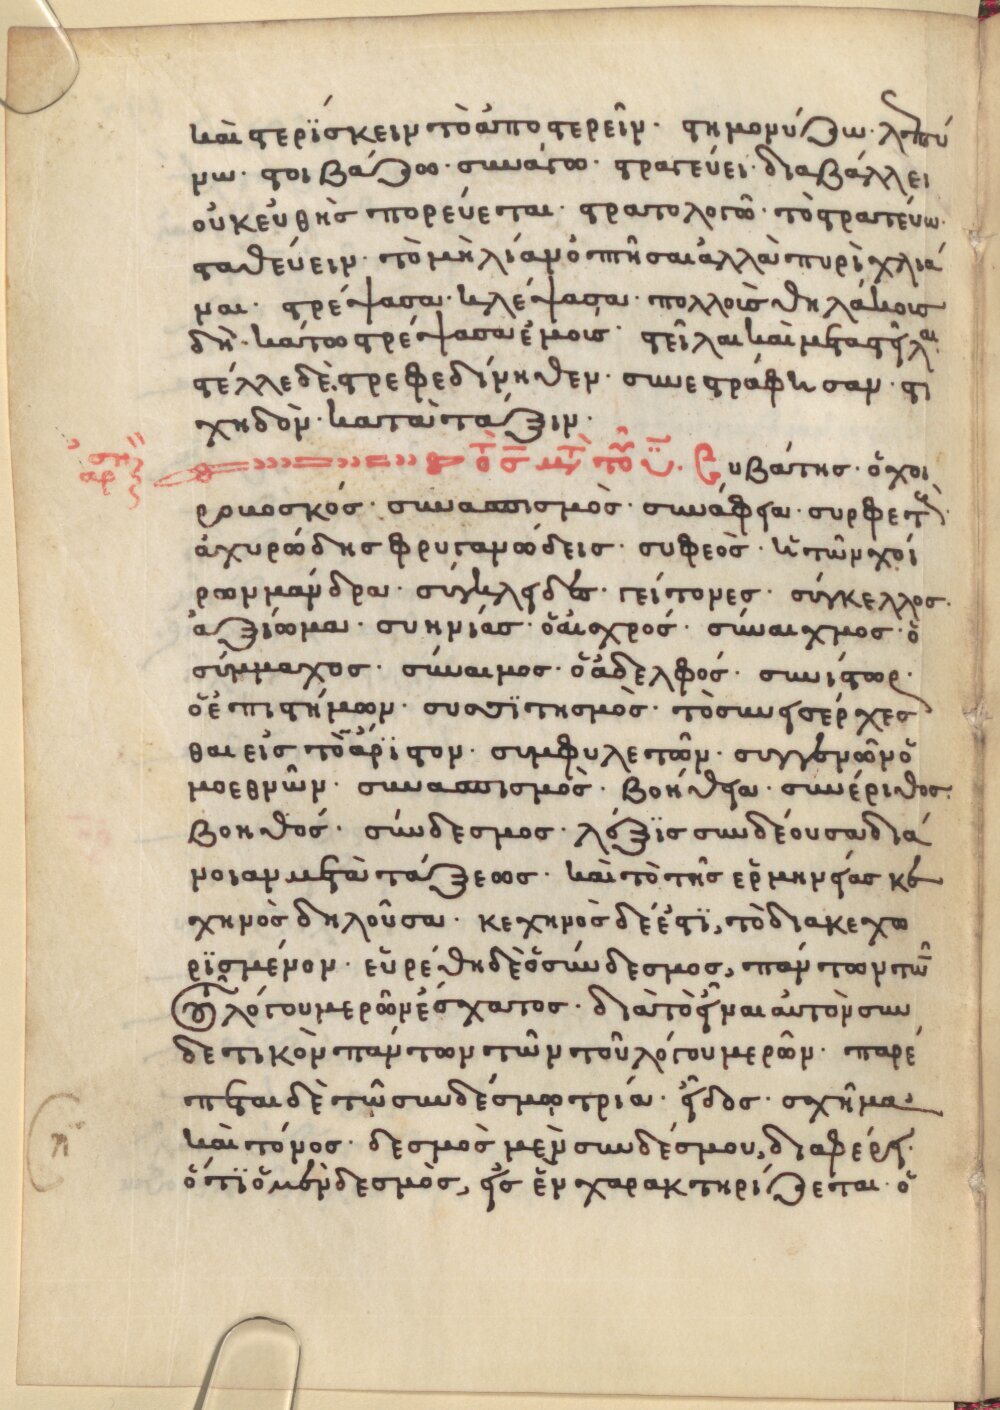 καὶ στερΐσκειν τὸ ἀποστερεῖν· στημονίζω· λεπτύ
νω· στοιβάζω· συνάγω· στρατεύει· διαβάλλει
οὐκ εὐθὴς πορεύεται· στρατολογῶ· τὸ στρατεύω·
σταθεύειν· τὸ μὴ λίαν ὀπτῆσαι ἀλλὰ πυρὶ χλιᾶ
ναι· στρέψασα· κλέψασα· πολλοῖς
δὴ· κάτω στρέψασα ἐμοῖς· στεῖλαι καὶ μεταστεῖλαι
στέλλε δὲ· στρεφεδίνηθεν· συνεστράφησαν· στι
χηδὸν· κατὰ τάξιν·
τὸ σ μετὰ τοῦ ϋ· Συβώτης· ὁ χοι
ροβοσκός· συνασπισμὸς· συνάφεια· συρφετ
ἀχυρώδης φρυγανώδεις· συφεὸς· ἡ τῶν χοί
ρων μάνδρα· γείτονες· σύγκελλος·
ἀξίωμα· συηνίας· ὁ αἰσχρός· σύναιχμος· ὁ
σύμμαχος· σύναιμος· ὁ ἀδελφός· συνίστωρ·
ὁ ἐπιστήμων· συσσϊτησμὸς· τὸ συνεισέρχεσ
θαι εἰς τὸ ἄρϊστον· συμφυλετῶν· συγγενῶν ὁ
μοεθνῶν· συνασπισμὸς· βοήθεια· συνέριθος·
βοηθός· σύνδεσμος· λέξϊς συνδέουσα διά
νοιαν μετὰ τάξεως· καὶ τὸ τῆς ἑρμηνείας κε
χηνὸς δηλοῦσα· κεχηνὸς δέ ἐστϊ, τὸ διακεχω
ρϊσμένον· εὑρέθη δὲ ὁ σύνδεσμος, πάντων τῶν
τοῦ λόγου μερῶν ἔσχατος· διὰ τὸ εἶναι αὐτὸν συν
δετικὸν πάντων τῶν τοῦ λόγου μερῶν· παρέ
πεται δὲ τῶ συνδέσμω τρία· εἶδος· σχῆμα
καὶ τόνος· δεσμὸς μὲν συνδέσμου, διαφέρει·
ὅτϊ ὁ μὲν δεσμὸς, εἷς ἓν χαρακτηρίζεται· ὁ